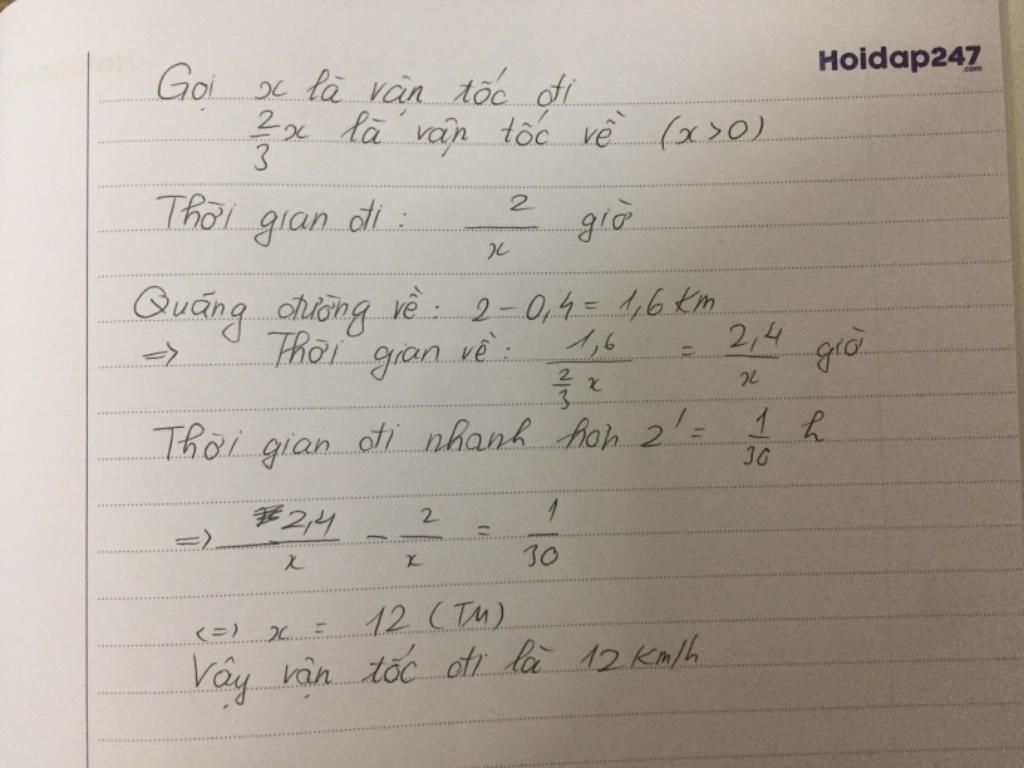 Hoidap247
.com
Gọi x là vận tốc đi
2/3 x là vận tốc về (x>0)
Thời gian đi: 2/x giờ
Quãng đường về: 2 - 0,4 = 1,6 Km
=> Thời gian về: 1,6/(2/3 x) = 2,4/x giờ
Thời gian đi nhanh hơn 2' = 1/30 h
=> 2,4/x - 2/x = 1/30
<=> x = 12 (TM)
Vậy vận tốc đi là 12 Km/h